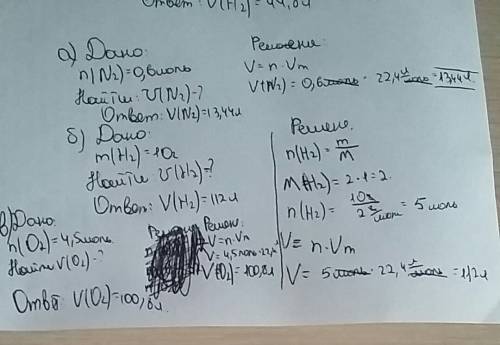 Ответ: V(H₂)=44,8л
а) Дано:
n(N₂)=0,6моль
Найти: V(N₂)-?
Ответ: V(N₂)=13,44л
Решение:
V=n·Vm
V(N₂)=0,6моль · 22,4 л/моль = 13,44л
б) Дано:
m(H₂)=10г
Найти V(H₂)-?
Ответ: V(H₂)=112л
Решение.
n(H₂)=m/M
M(H₂)=2·1=2.
n(H₂)=10г/2 г/моль = 5 моль
V= n·Vm
V= 5моль·22,4 л/моль=112л
в) Дано:
n(O₂)=4,5моль.
Найти V(O₂)-?
Ответ: V(O₂)=100,8л
Решен:
V=n·Vm
V=4,5моль·22,4
V(O₂)=100,8л